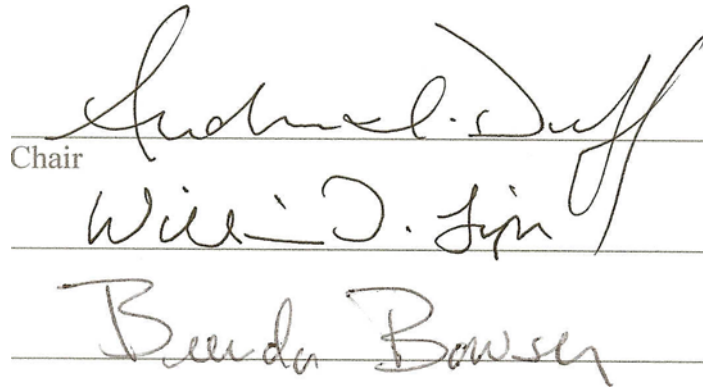 Andrew I. Duff
Chair
William D. Lipe
Brenda Bowser